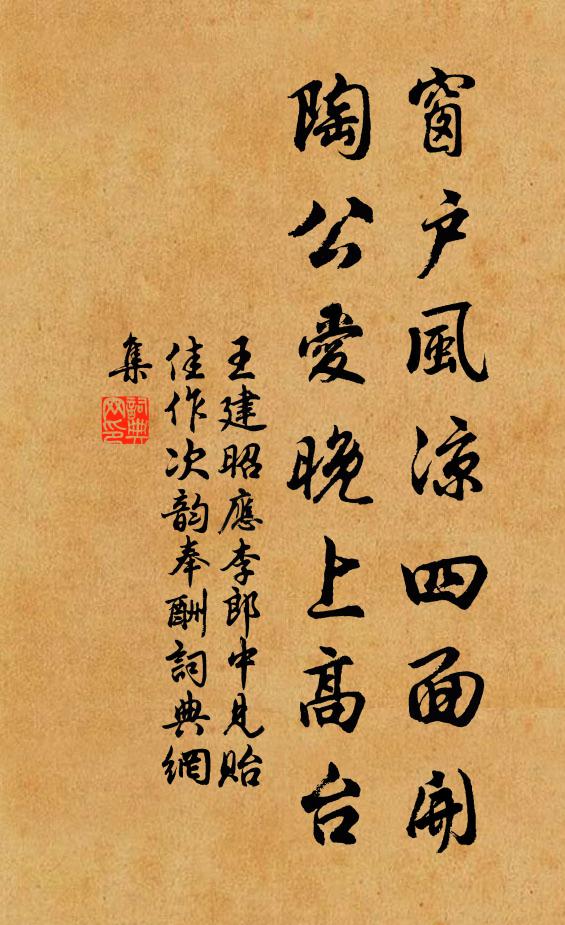 窗户風凉四面開
陶公愛晚上高台
王建昭應李郎中見貽
佳作次韵奉酬詞典網
集
詞典網印